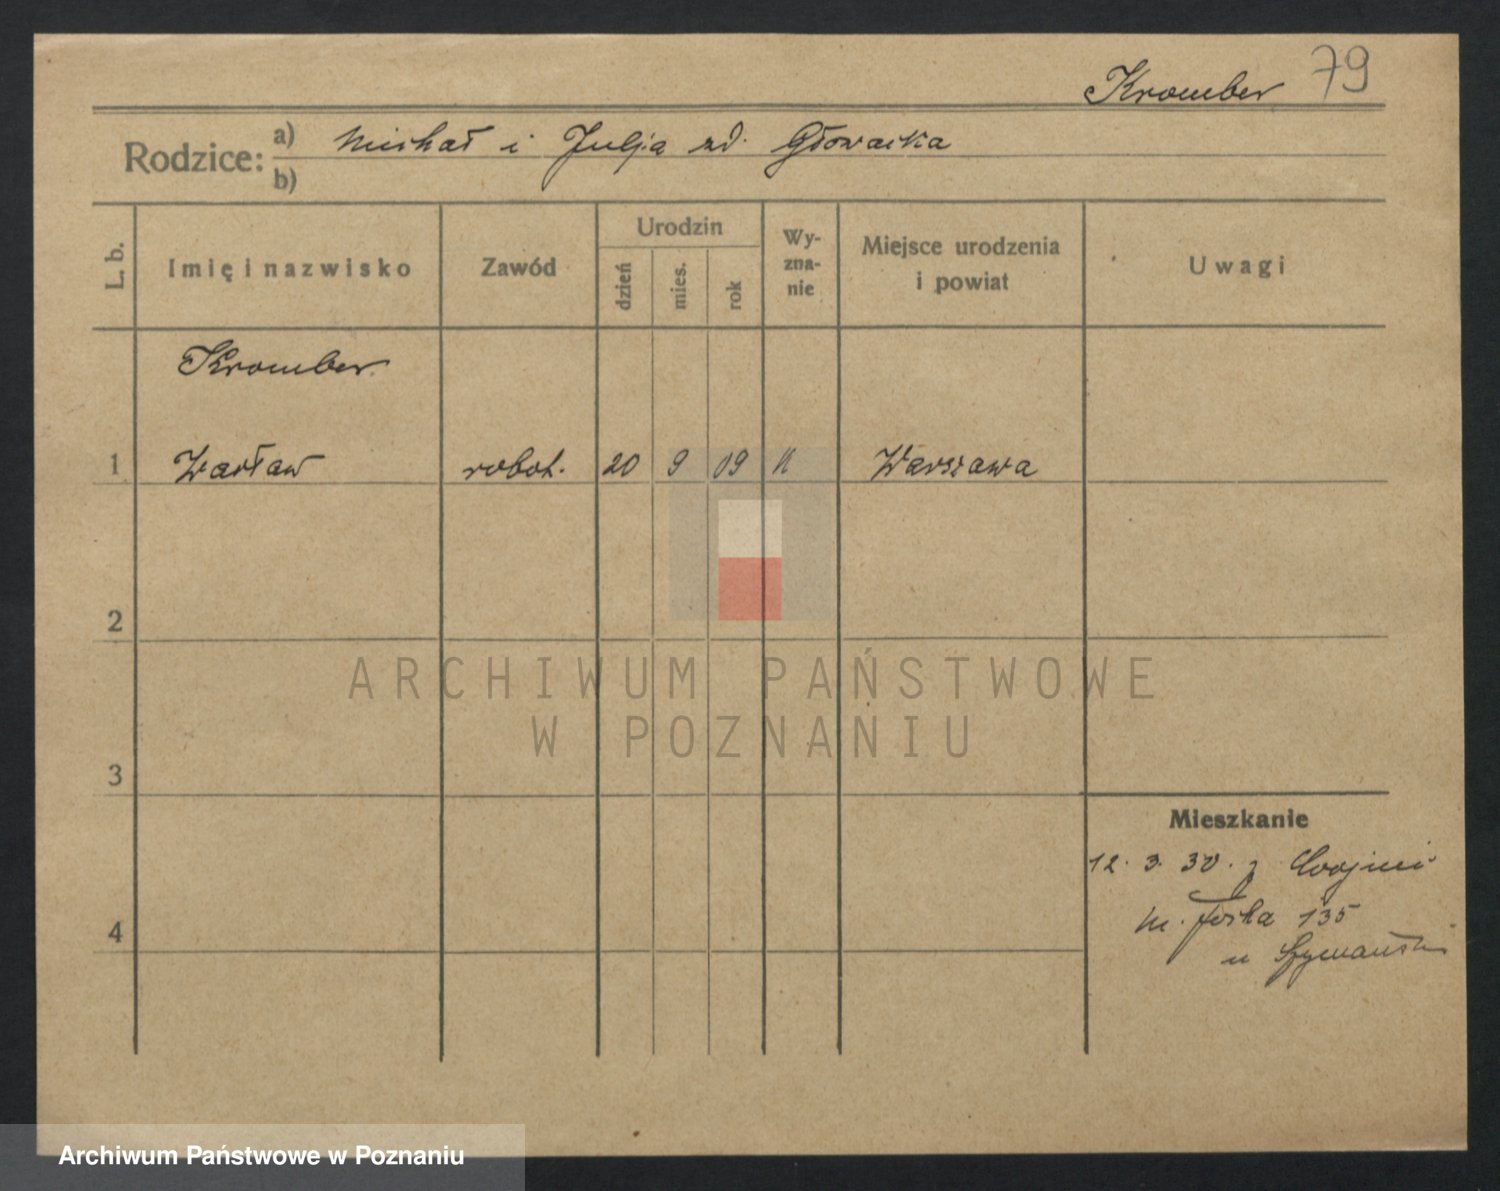 Kromber 79
Rodzice: a) Michał i Julja zd. Głowacka
b)
L. b.
Imię i nazwisko
Zawód
Urodzin
dzień
mies.
rok
Wy-
zna-
nie
Miejsce urodzenia
i powiat
Uwagi
Kromber
1 Wacław robot. 20 9 09 K Warszawa
2
ARCHIWUM PAŃSTWOWE
W POZNANIU
3
Mieszkanie
12. 3. 30. z
4
135
u Szymański
Archiwum Państwowe w Poznaniu